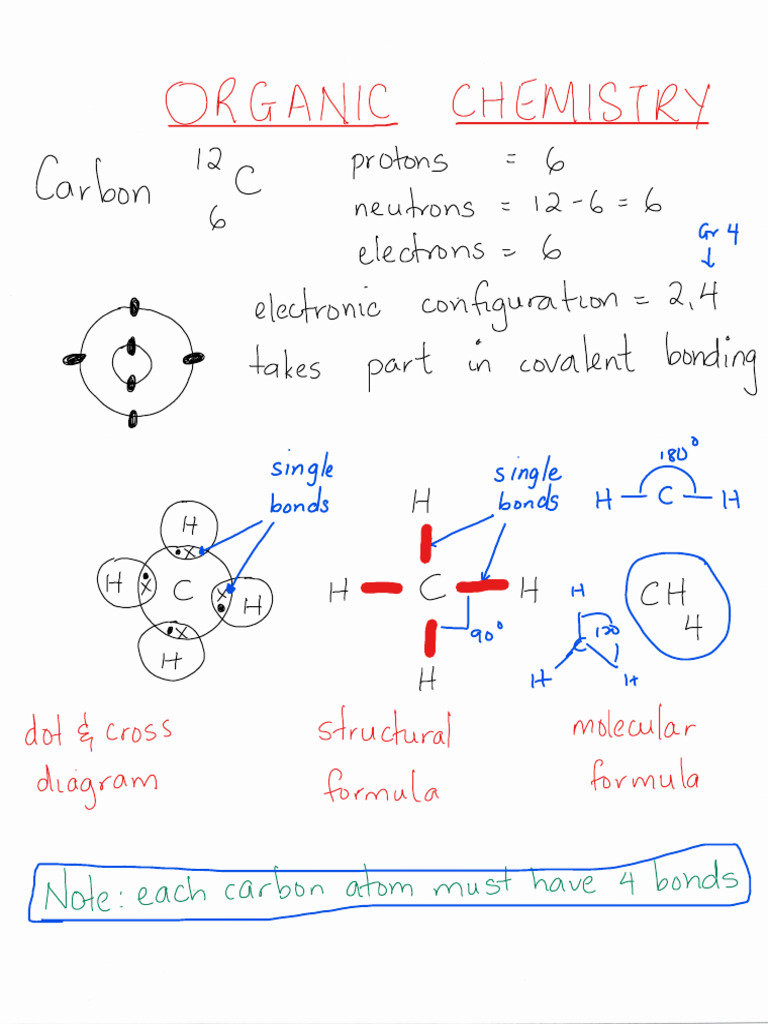 ORGANIC CHEMISTRY
Carbon 12 6 C
protons = 6
neutrons = 12 - 6 = 6
electrons = 6
Gr 4
electronic configuration = 2,4
takes part in covalent bonding
single bonds
single bonds
180°
H — C — H
H
H
H
H
C
x
x
x
x
H
H C H
H
90°
H
120
C
H H
CH4
dot & cross
diagram
structural
formula
molecular
formula
Note: each carbon atom must have 4 bonds